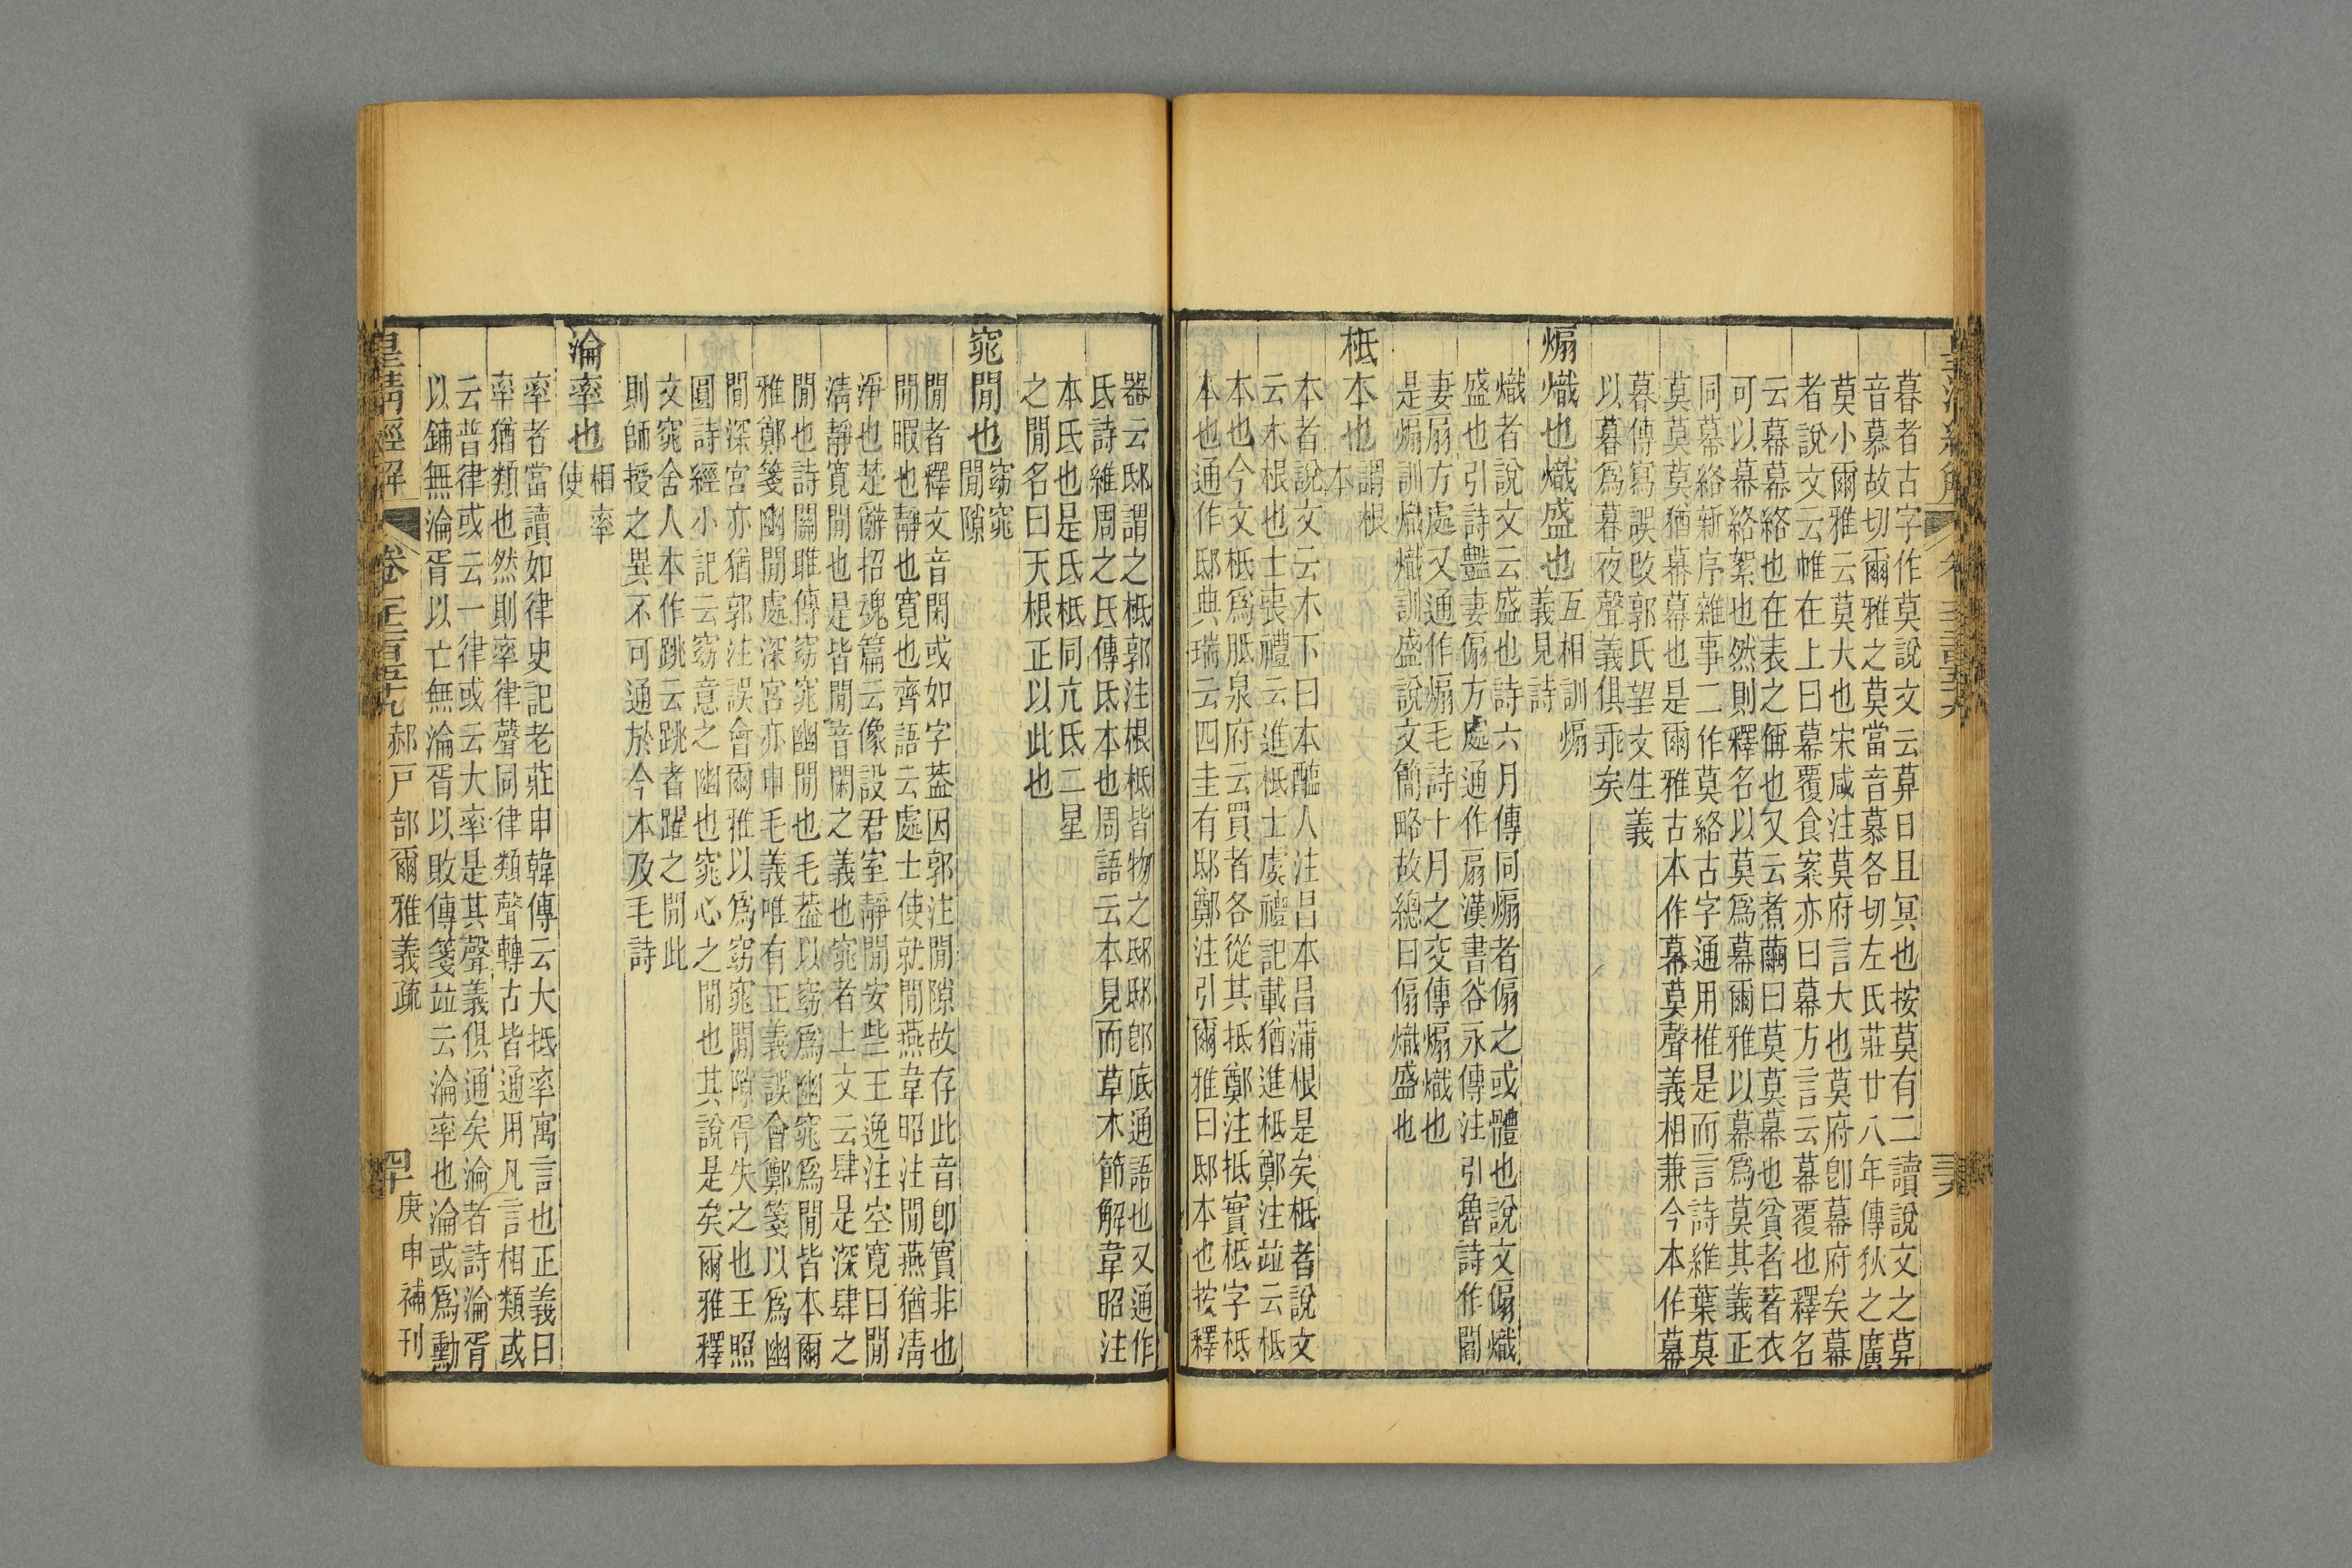 暮者古字作莫說文云莫日且冥也按莫有二讀說文之莫
音慕故切爾雅之莫當音慕各切左氏莊廿八年傳狄之廣
莫小爾雅云莫大也宋咸注莫府言大也莫府卽幕府矣幕
者說文云帷在上曰幕覆食案亦曰幕方言云幕覆也釋名
云幕幕絡也在表之偁也又云煮繭曰莫莫幕也貧者著衣
可以幕絡絮也然則釋名以莫爲幕爾雅以幕爲莫其義正
同幕絡新序雜事二作莫絡古字通用惟是而言詩維葉莫
莫莫莫猶幕幕也是爾雅古本作幕莫聲義相兼今本作幕
暮傳寫誤改郭氏望文生義
以暮爲暮夜聲義俱乖矣
煽熾也熾盛也互相訓煽
義見詩
熾者說文云盛也詩六月傳同煽者傓之或體也說文傓熾
盛也引詩豔妻傓方處通作扇漢書谷永傳注引魯詩作閻
妻扇方處又通作煽毛詩十月之交傳煽熾也
是煽訓熾熾訓盛說文簡略故總曰傓熾盛也
柢本也謂根
本
本者說文云木下曰本醢人注昌本昌蒲根是矣柢者說文
云木根也士喪禮云進柢士虞禮記載猶進柢鄭注竝云柢
本也今文柢爲胝泉府云買者各從其抵鄭注抵實柢字柢
本也通作邸典瑞云四圭有邸鄭注引爾雅曰邸本也按釋
器云邸謂之柢郭注根柢皆物之邸邸卽底通語也又通作
氐詩維周之氐傳氐本也周語云本見而草木節解韋昭注
本氐也是氐柢同亢氐二星
之閒名曰天根正以此也
窕閒也窈窕
閒隙
閒者釋文音閑或如字葢因郭注閒隙故存此音卽實非也
閒暇也靜也寬也齊語云處士使就閒燕韋昭注閒燕猶淸
淨也楚辭招魂篇云像設君室靜閒安些王逸注空寬曰閒
淸靜寬閒也是皆閒音閑之義也窕者上文云肆是深肆之
閒也詩關雎傳窈窕幽閒也毛葢以窈爲幽窕爲閒皆本爾
雅鄭箋幽閒處深宮亦申毛義唯有正義誤會鄭箋以爲幽
閒深宮亦猶郭注誤會爾雅以爲窈窕閒隙胥失之也王照
圓詩經小記云窈意之幽也窕心之閒也其說是矣爾雅釋
文窕舍人本作跳云跳者躍之閒此
則師授之異不可通於今本及毛詩
淪率也相率
使
率者當讀如律史記老莊申韓傳云大抵率寓言也正義曰
率猶類也然則率律聲同律類聲轉古皆通用凡言相類或
云普律或云一律或云大率是其聲義俱通矣淪者詩淪胥
以鋪無淪胥以亡無淪胥以敗傳箋竝云淪率也淪或爲勳
皇淸經解 卷一千二百五十九 郝戶部爾雅義疏 四十 庚申補刊